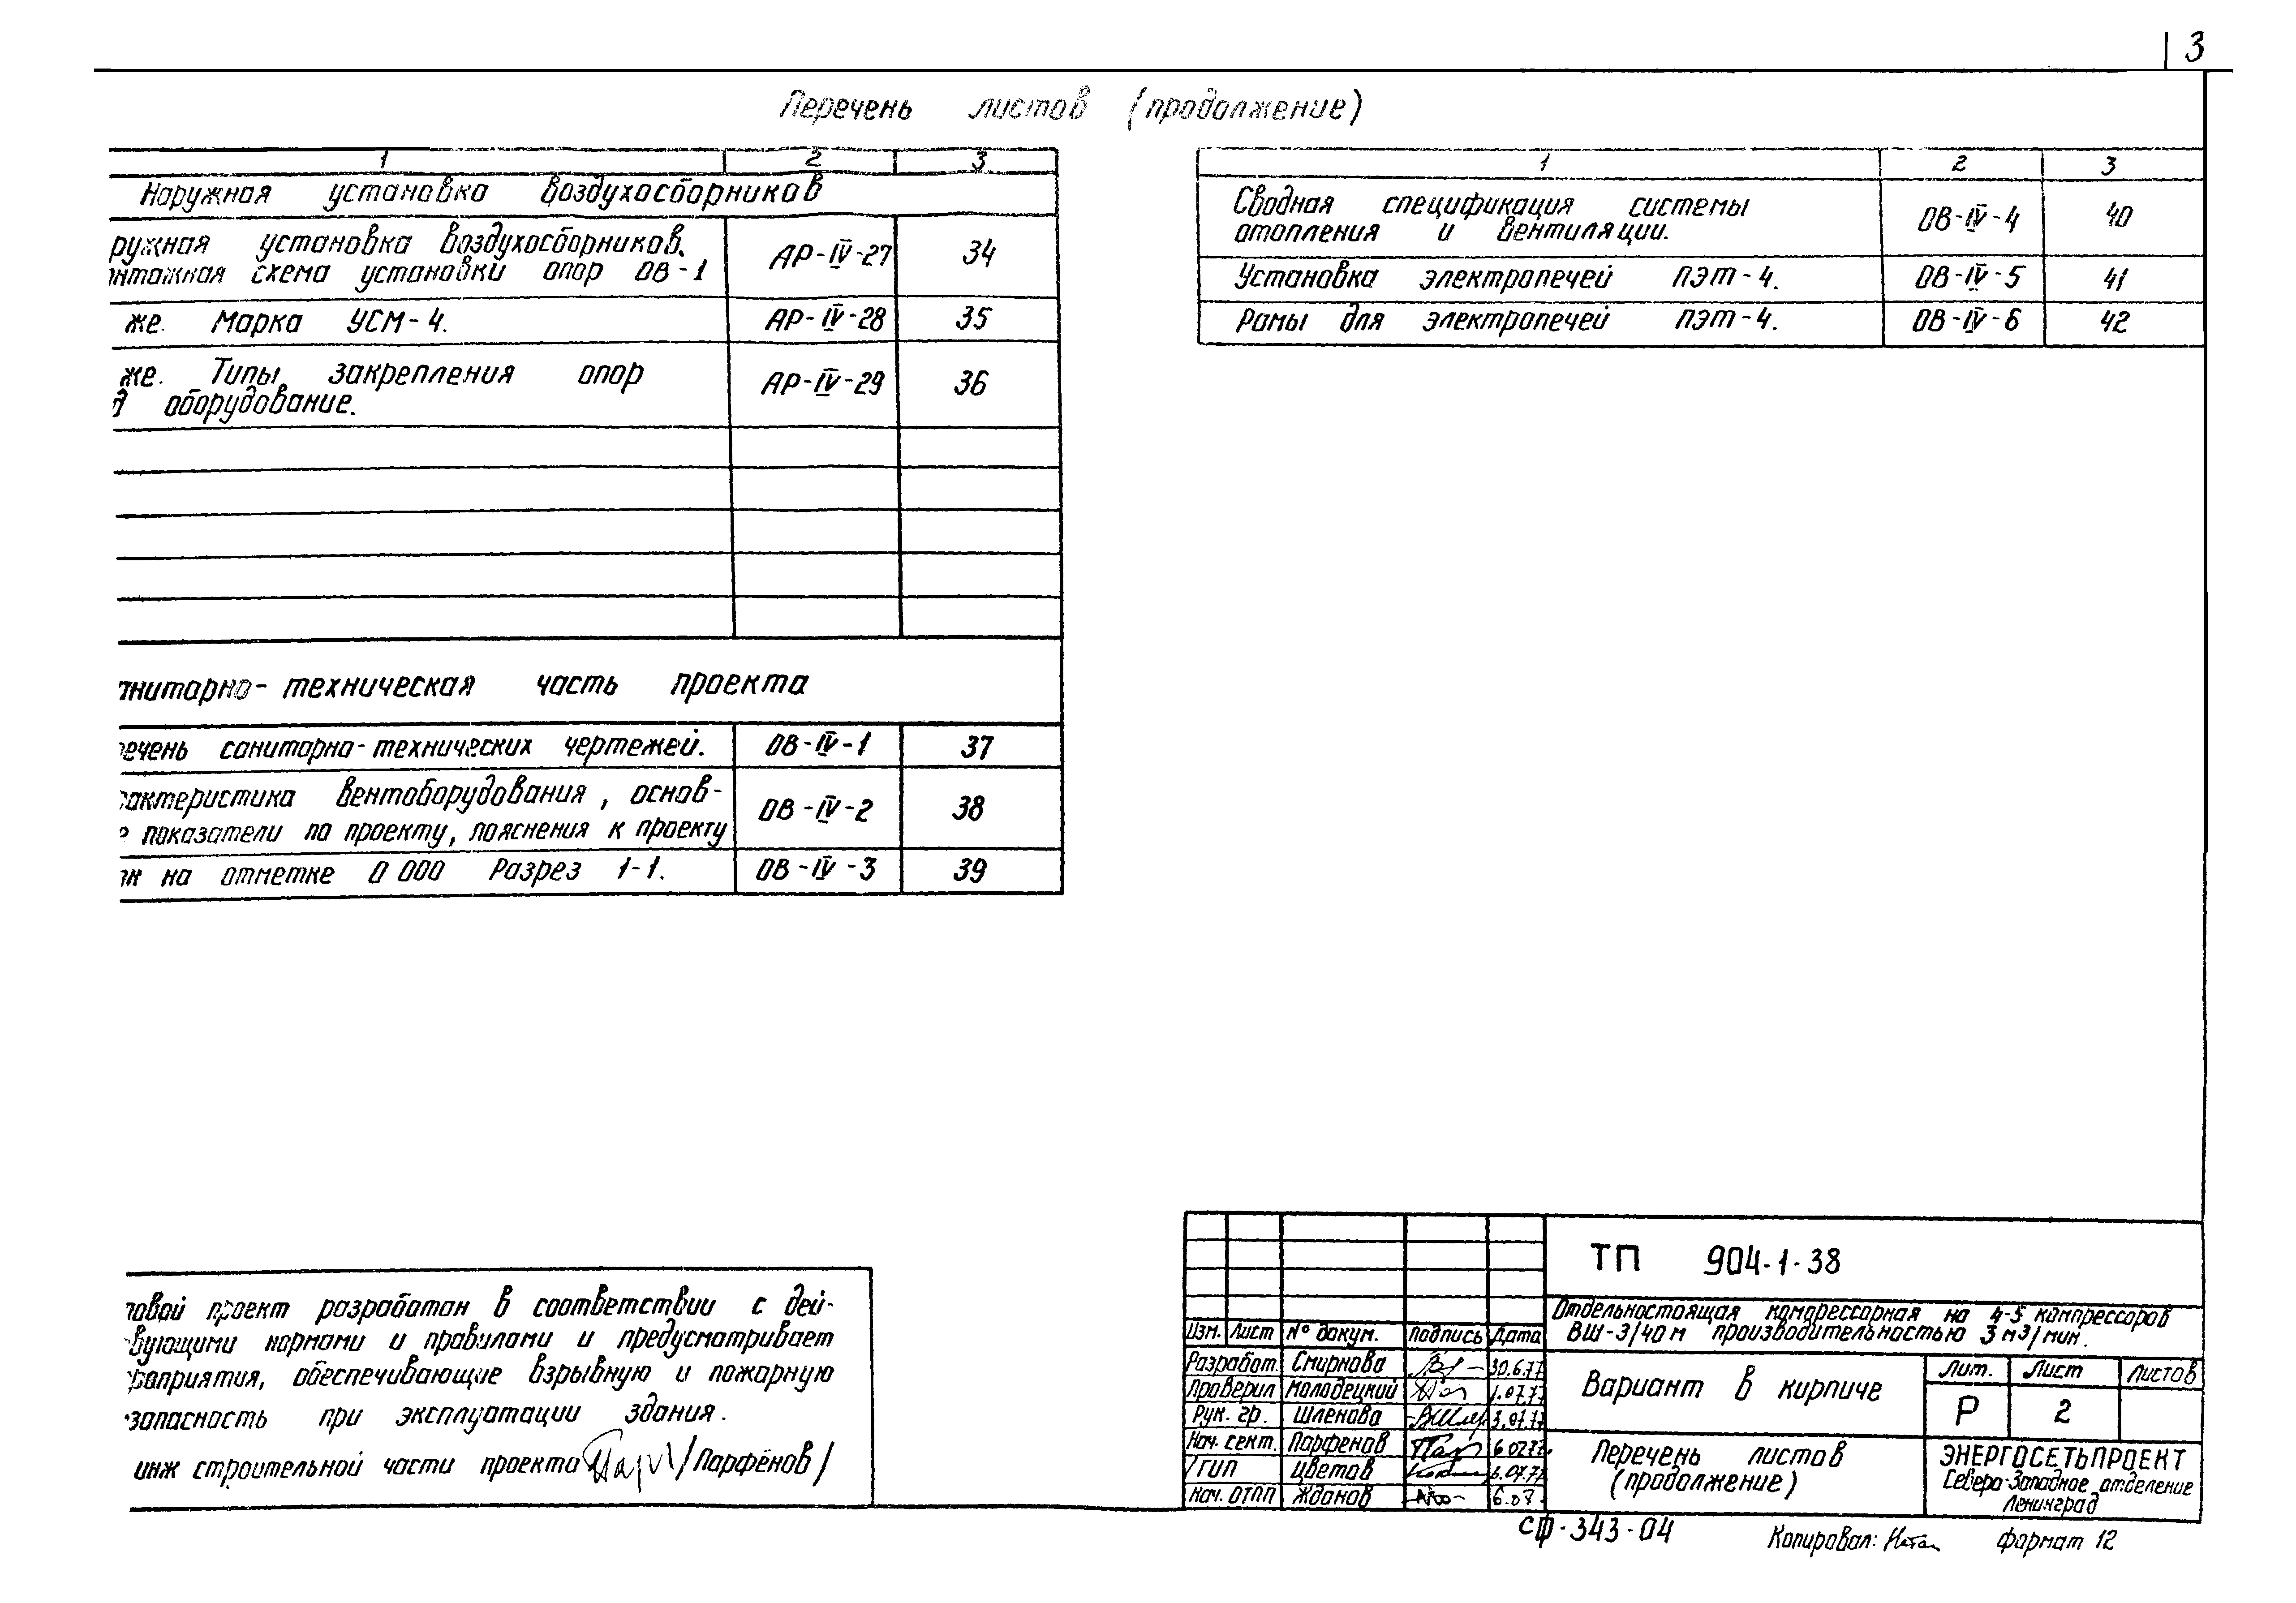 3
Перечень листов (продолжение)
1 2 3
Наружная установка воздухосборников
ружная установка воздухосборников.
онтажная схема установки опор ОВ-1
АР-IV-27 34
же. Марка УСМ-4. АР-IV-28 35
же. Типы закрепления опор
д оборудование.
АР-IV-29 36
нитарно-техническая часть проекта
речень санитарно-технических чертежей. ОВ-IV-1 37
рактеристика вентоборудования, основ-
показатели по проекту, пояснения к проекту
ОВ-IV-2 38
ан на отметке 0 000 Разрез 1-1. ОВ-IV-3 39
1 2 3
Сводная спецификация системы
отопления и вентиляции.
ОВ-IV-4 40
Установка электропечей ПЭТ-4. ОВ-IV-5 41
Рамы для электропечей ПЭТ-4. ОВ-IV-6 42
повой проект разработан в соответствии с дей-
вующими нормами и правилами и предусматривает
роприятия, обеспечивающие взрывную и пожарную
зопасность при эксплуатации здания.
инж строительной части проекта /Парфёнов/
ТП 904-1-38
Отдельностоящая компрессорная на 4-5 компрессоров
ВШ-3/40м производительностью 3 м3/мин.
Изм. Лист № докум. подпись Дата
Разработ. Смирнова 30.6.77
Проверил Молодецкий 1.07.77
Рук. гр. Шленова 3.07.77
Нач. сект. Парфенов 6.07.77.
ГИП Цветов 6.07.77
Нач. ОТПП Жданов 6.07
Вариант в кирпиче
Лит. Лист Листов
Р 2
Перечень листов
(продолжение)
ЭНЕРГОСЕТЬПРОЕКТ
Северо-Западное отделение
Ленинград
СФ-343-04
Копировал: формат 12